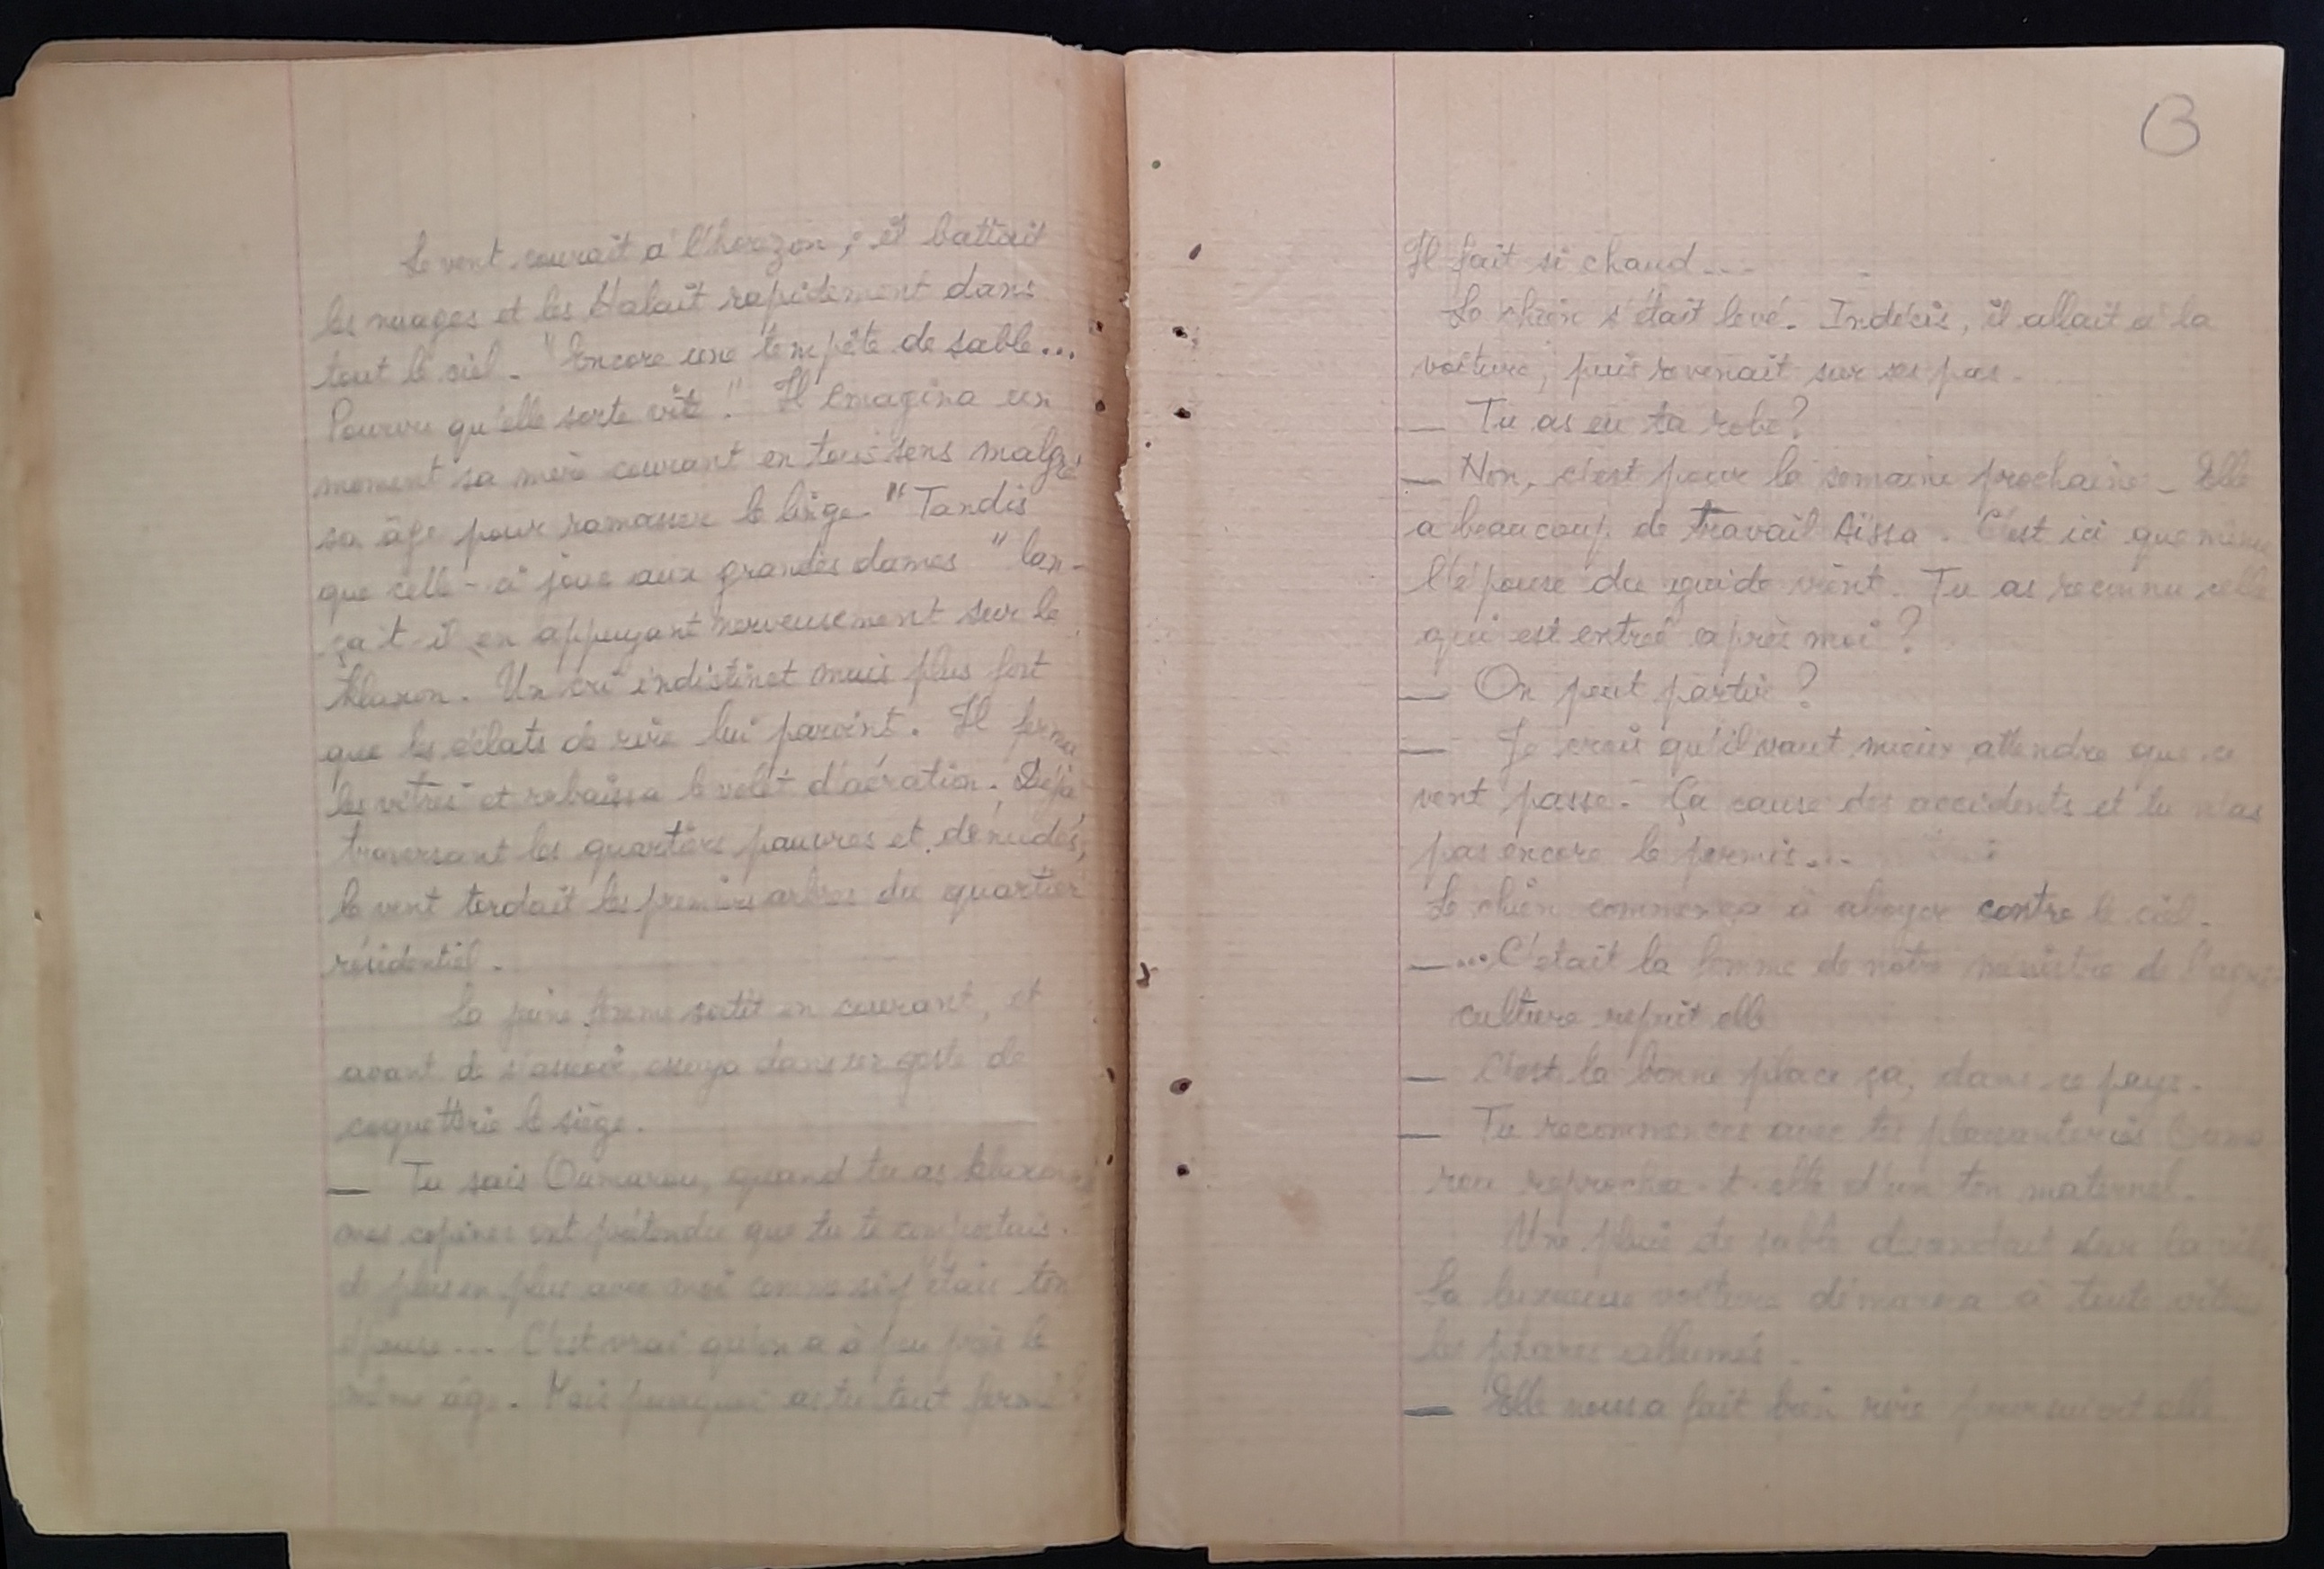 Le vent courait à l'horizon ; il battait
les nuages et les étalait rapidement dans
tout le ciel. "Encore une tempête de sable...
Pourvu qu'elle sorte vite". Il imagina un
moment sa mère courant en tous sens malgré
sa âge pour ramasser le linge. "Tandis
que celle-ci joue aux grandes dames" lan-
ça-t-il en appuyant nerveusement sur le
klaxon. Un cri indistinct mais plus fort
que les éclats de rire lui parvint. Il ferma
les vitres et rabaissa le volet d'aération. Déjà,
traversant les quartiers pauvres et dénudés,
le vent tordait les premiers arbres du quartier
résidentiel.
La jeune femme sortit en courant, et
avant de s'asseoir, essuya dans un geste de
coquetterie le siège.
— Tu sais Oumarou, quand tu as klaxonné
mes copines ont prétendu que tu te comportais
de plus en plus avec moi comme si j'étais ton
épouse... C'est vrai qu'on a à peu près le
même âge. Mais pourquoi as tu tout fermé ?
13
Il fait si chaud...
Le chien s'était levé. Indécis, il allait à la
voiture, puis revenait sur ses pas.
— Tu as eu ta robe ?
— Non, c'est pour la semaine prochaine. Elle
a beaucoup de travail Aïssa. C'est ici que même
l'épouse du guide vient. Tu as reconnu celle
qui est entrée après moi ?
— On peut partir ?
— Je crois qu'il vaut mieux attendre que ce
vent passe. Ça cause des accidents et tu n'as
pas encore le permis...
Le chien commença à aboyer contre le ciel.
— ...C'était la femme de notre ministre de l'agri-
culture reprit elle
— C'est la bonne place ça, dans ce pays.
— Tu recommences avec tes plaisanteries Ouma
rou reprocha-t-elle d'un ton maternel.
Une pluie de sable descendait sur la ville.
La luxueuse voiture démarra à toute vitesse
les phares allumés.
— Elle nous a fait bien rire poursuivit elle